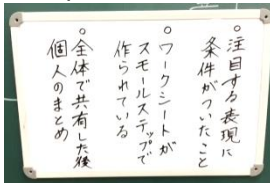 ○注目する表現に
条件がついたこと
○ワークシートが
スモールステップで
作られている
○全体で共有した後
個人のまとめ